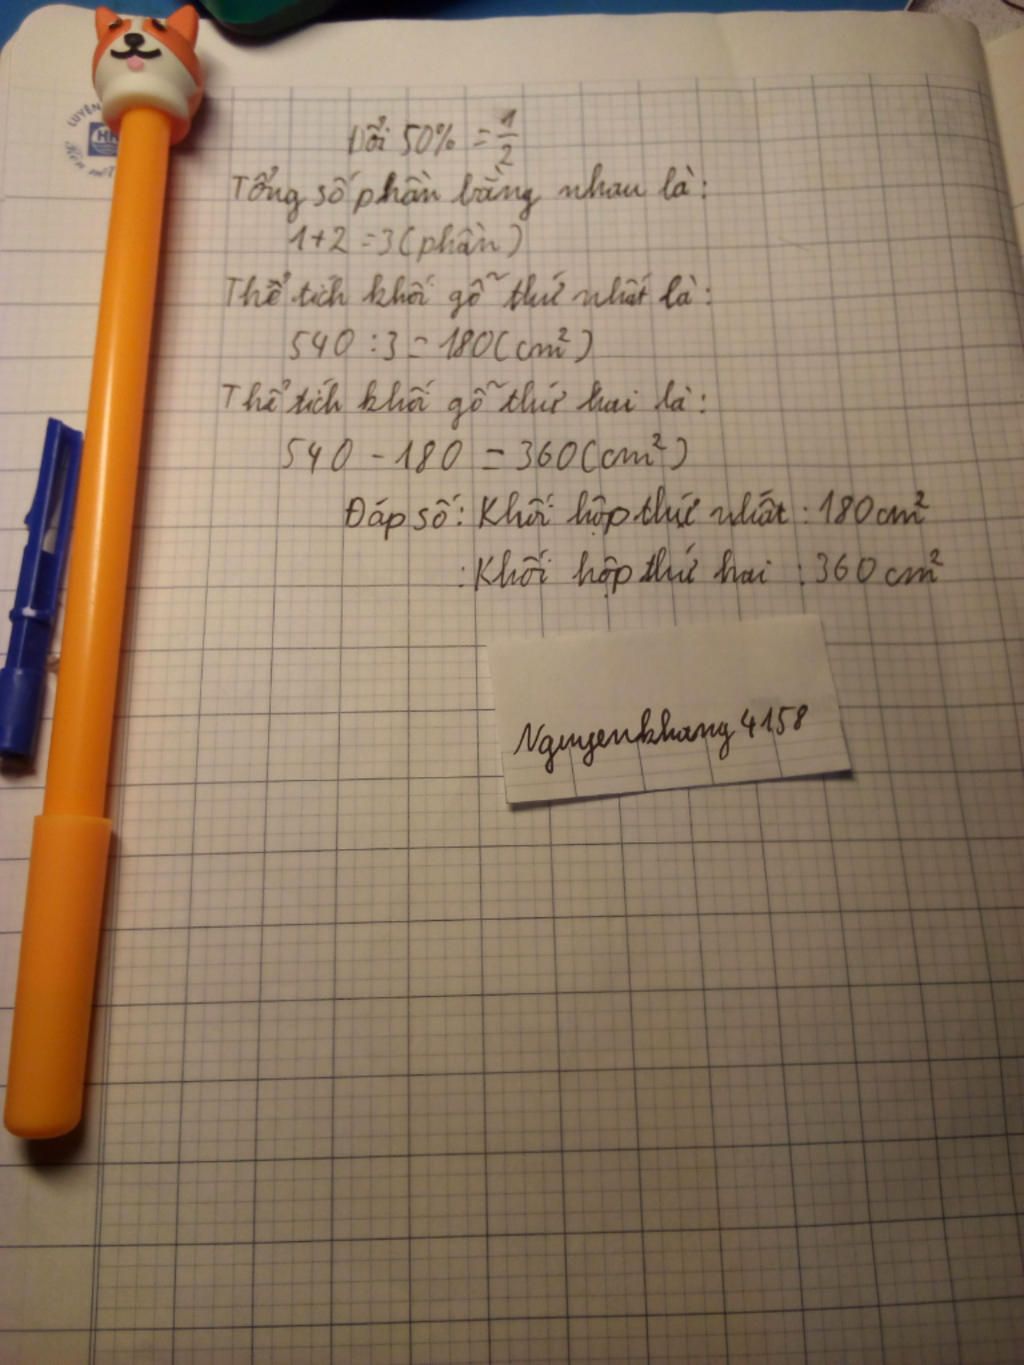 Đổi 50% = 1/2
Tổng số phần bằng nhau là:
1+2 = 3 (phần)
Thể tích khối gỗ thứ nhất là:
540 : 3 = 180 (cm²)
Thể tích khối gỗ thứ hai là:
540 - 180 = 360 (cm²)
Đáp số: Khối hộp thứ nhất : 180 cm²
: Khối hộp thứ hai : 360 cm²
Nguyenkhang 4158